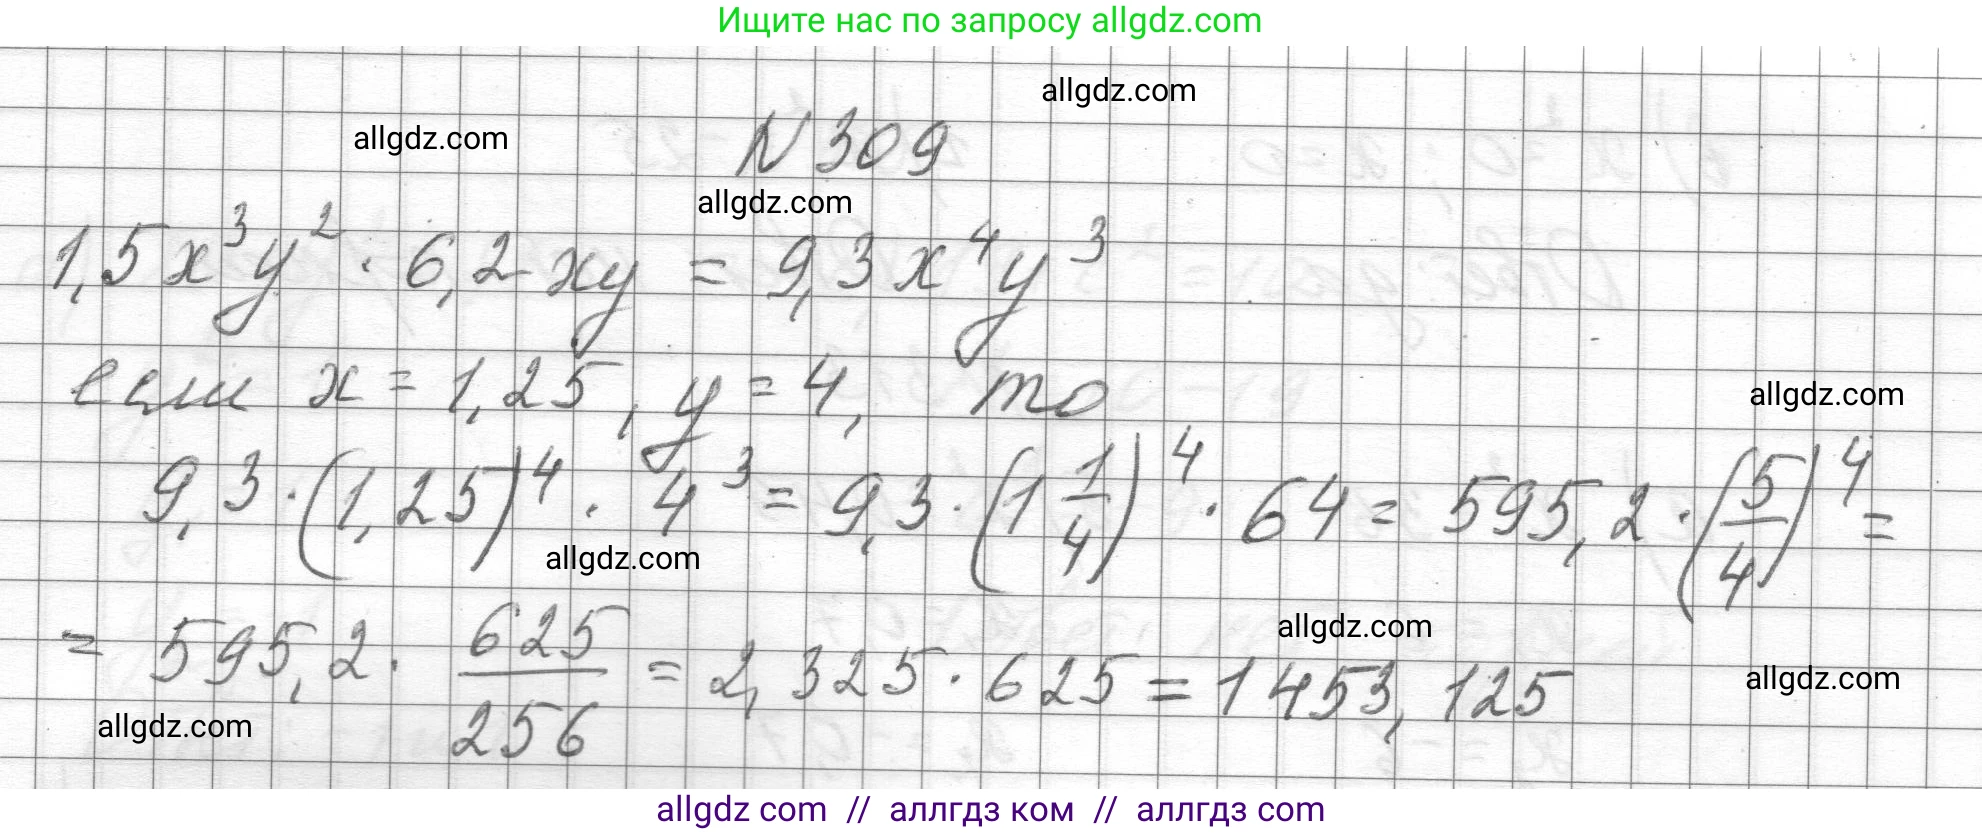 Ищите нас по запросу allgdz.com
allgdz.com
allgdz.com
N 309
allgdz.com
1,5x³y² · 6,2xy = 9,3x⁴y³
если x = 1,25, y = 4, то
allgdz.com
9,3 · (1,25)⁴ · 4³ = 9,3 · (1 1/4)⁴ · 64 = 595,2 · (5/4)⁴ =
allgdz.com
allgdz.com
= 595,2 · 625/256 = 2,325 · 625 = 1453,125
allgdz.com
allgdz.com
allgdz com // аллгдз ком // аллгдз com